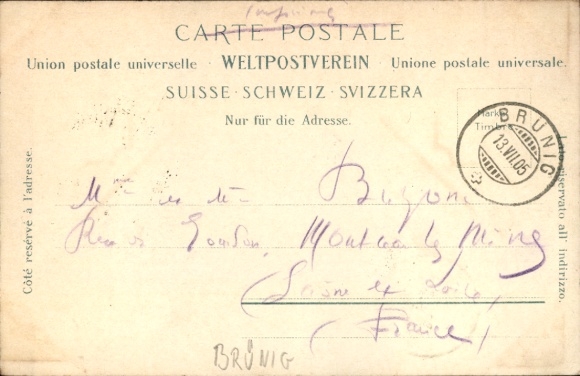 CARTE POSTALE
Union postale universelle · WELTPOSTVEREIN · Unione postale universale.
SUISSE · SCHWEIZ · SVIZZERA
Nur für die Adresse.
Marke
Timbre
BRÜNIG
13.VII.05
Côté resérvé à l'adresse.
Lato riservato all' indirizzo.
Montceau les Mines
Saône et Loire
(France)
BRÜNIG